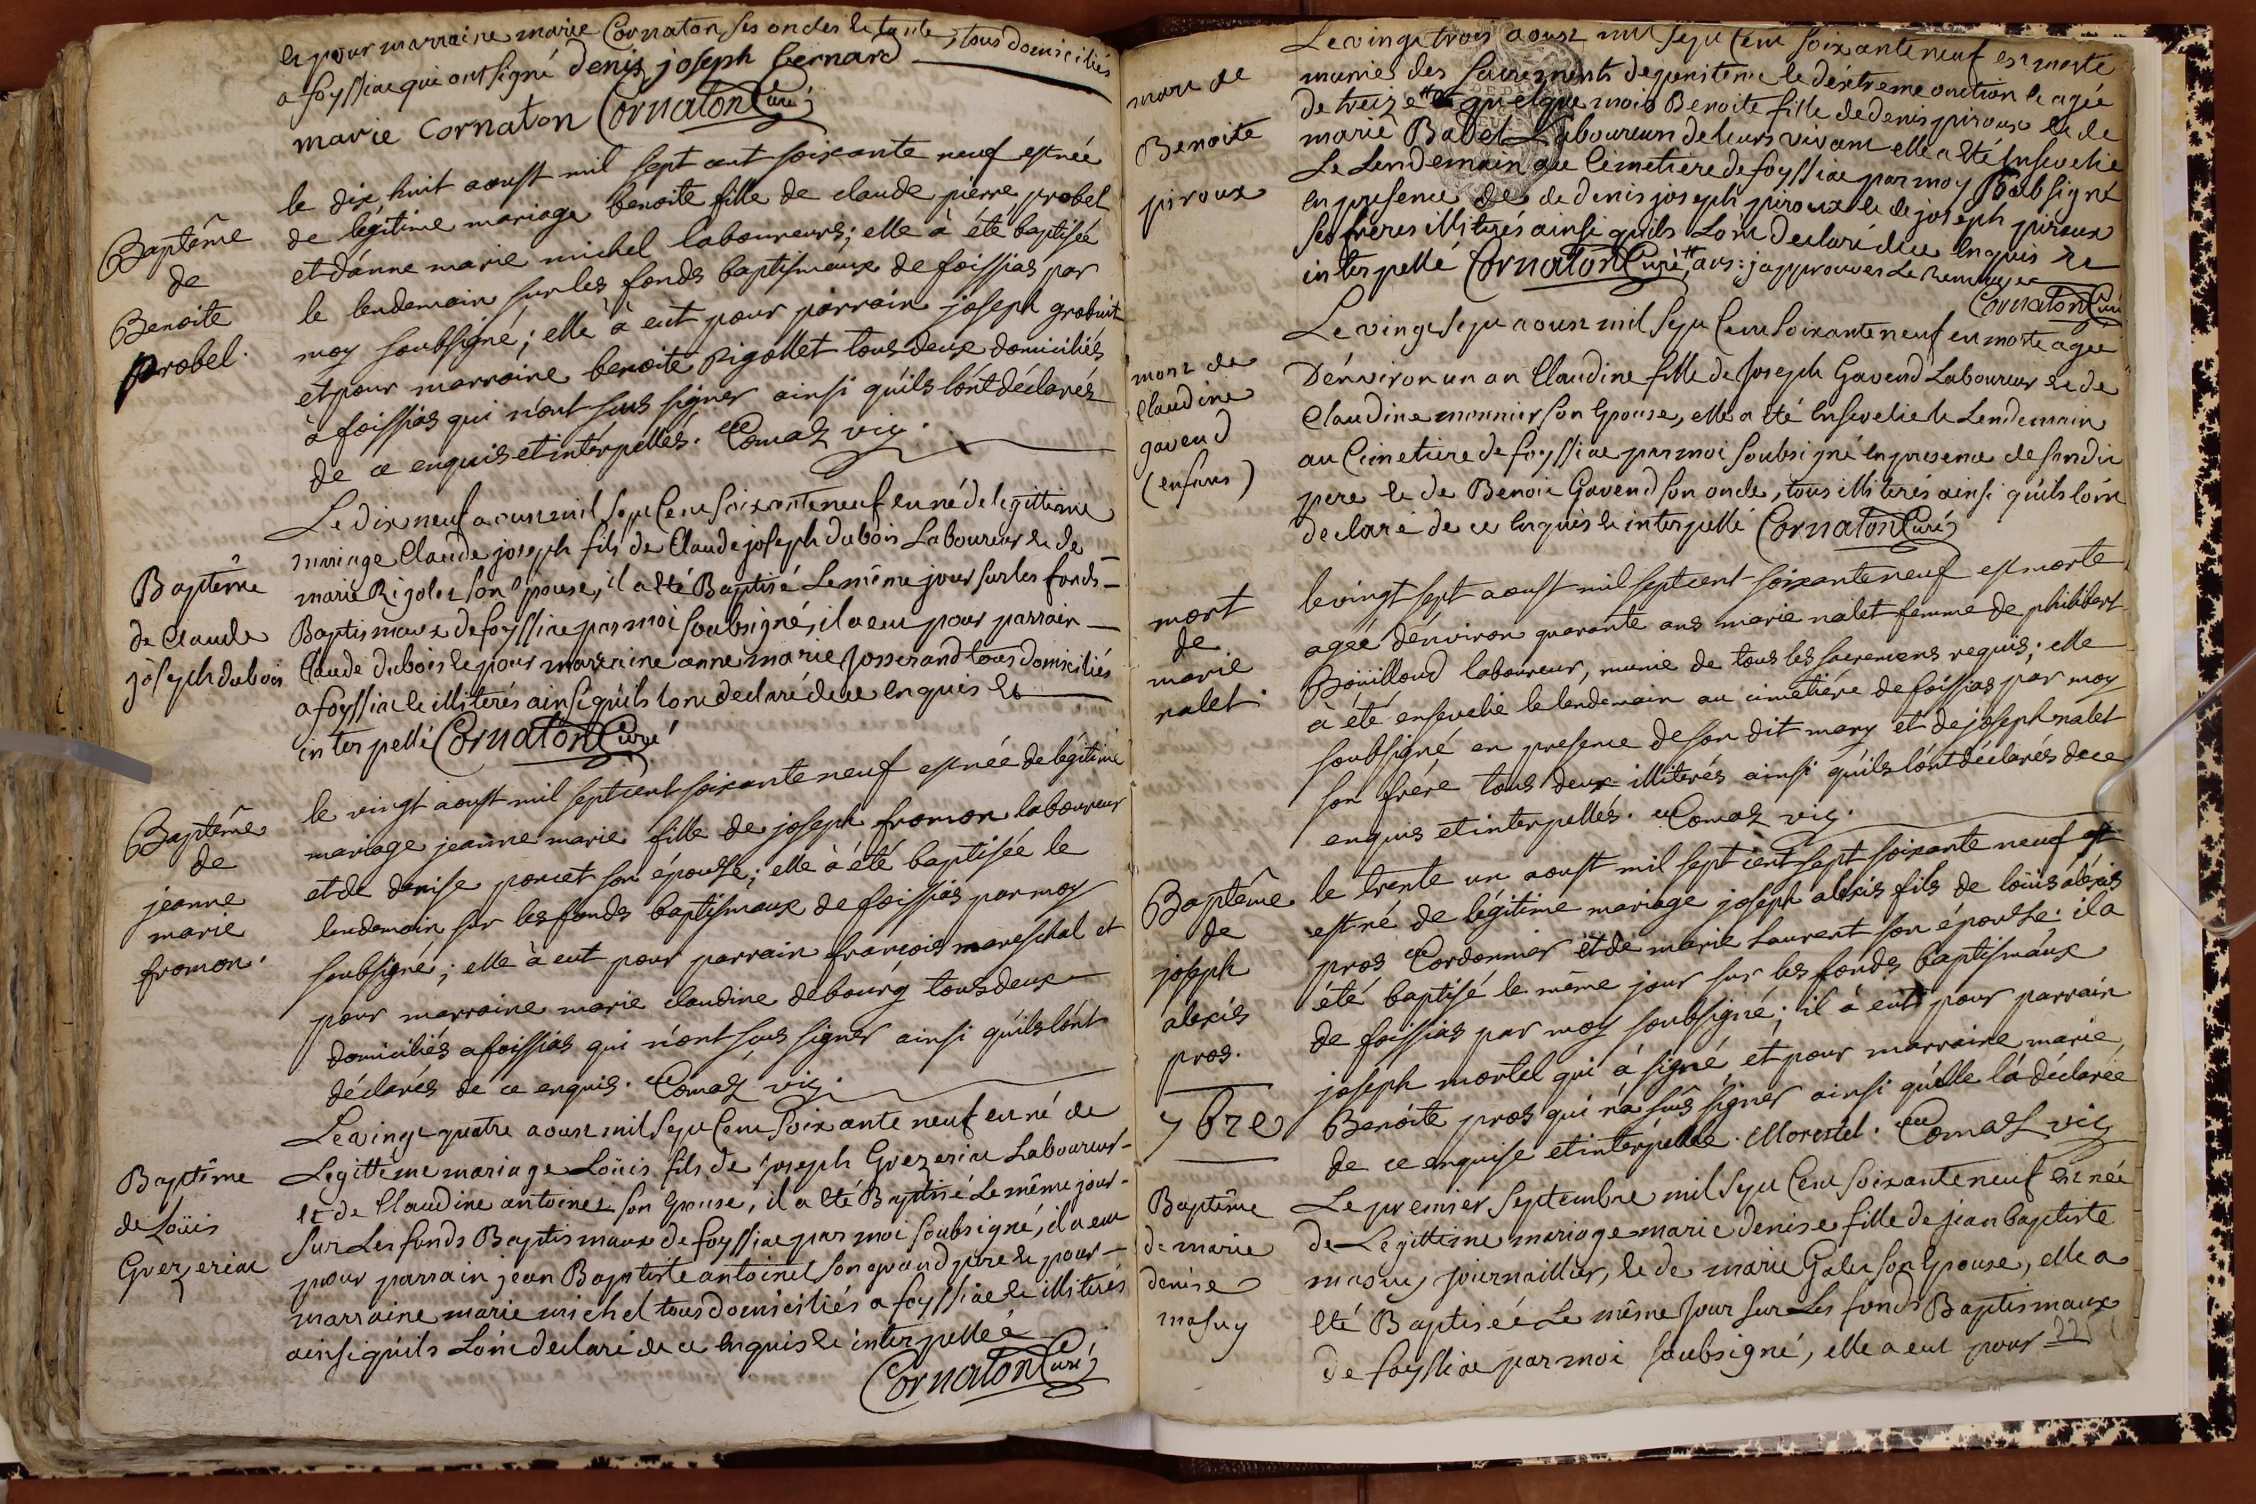 et pour marraine marie Cornaton ses oncles et tante, tous domiciliés
a foyssiac qui ont signé denis joseph bernard
marie cornaton Cornaton Curé
Baptême
de
Benoite
probel.
le dix huit aoust mil sept cent soixante neuf est née
de légitime mariage benoite fille de claude pierre probel
et d'anne marie michel laboureurs; elle à été baptisée
le lendemain sur les fonds baptismaux de foissias par
moy soubsigné; elle à eut pour parrain joseph grobuit
et pour marraine benoite Rigollet tous deux domiciliés
à foissias qui n'ont sçus signer ainsi qu'ils l'ont déclarés
de ce enquis et interpellés. Comas vic.
Baptême
de Claude
joseph dubois
Le dix neuf aoust mil sept Cent soixante neuf est né de legittime
mariage Claude joseph fils de Claude joseph dubois Laboureur et de
marie Rigolet son Epouse, il a été Baptisé Le même jour sur les fonds
Baptismaux de foyssiac par moi soubsigné, il a eu pour parrain
Claude dubois et pour marraine anne marie Josserand tous domiciliés
a foyssiac et illiterés ainsi qu'ils l'ont declaré de ce enquis et
interpellé Cornaton Curé
Baptême
de
jeanne
marie
fromon.
le vingt aoust mil sept cent soixante neuf est née de légitime
mariage jeanne marie fille de joseph fromon laboureur
et de denise poncet son épouse; elle à été baptisée le
lendemain sur les fonds baptismaux de foissias par moy
soubsigné; elle à eut pour parrain francois mareschal et
pour marraine marie claudine debourg tous deux
domiciliés a foissias qui n'ont sçus signer ainsi qu'ils l'ont
déclarés de ce enquis. Comas vic.
Baptême
de Loüis
Guezeriac
Le vingt quatre aoust mil sept Cent Soixante neuf est né de
Legittime mariage Loüis fils de Joseph Guezeriac Laboureur
et de Claudine antoinet son Epouse, il a été Baptisé Le même jour
sur Les fonds Baptismaux de foyssiac par moi soubsigné, il a eu
pour parrain jean Baptiste antoinet son grand pere et pour
marraine marie michel tous domiciliés a foyssiac et illiterés
ainsi qu'ils L'ont declaré de ce enquis et interpellé
Cornaton Curé
mort de
Benoite
piroux
Le vingt trois aoust mil sept Cent soixante neuf est morte
munie des sacrements de penitence et d'extreme onction et agée
de treize et quelque mois Benoite fille de denis piroux et de
marie Badel Laboureurs de leurs vivant elle a été Ensevelie
Le Lendemain au Cimetiere de foyssiac par moy soubsigné
en presence de de denis joseph piroux et de joseph piroux
ses freres illiterés ainsi qu'ils L'ont declaré de ce enquis et
interpellé Cornaton Curé ans: j'approuves Le Renvoy
Cornaton Curé
mort de
Claudine
gavend
(enfans)
Le vingt sept aoust mil sept Cent soixante neuf est morte agée
D'énviron un an Claudine fille de Joseph Gavend Laboureur et de
Claudine monnier son Epouse, elle a été Ensevelie le Lendemain
au Cimetiere de foyssiac par moi soubsigné en presence de son dit
pere et de Benoit Gavend son oncle, tous illiterés ainsi qu'ils l'ont
declaré de ce Enquis et interpellé Cornaton Curé
mort
de
marie
nalet
le vingt sept aoust mil sept cent soixante neuf est morte
agée d'énviron quarante ans marie nalet femme de philibert
Boüilloud laboureur, munie de tous les sacremens requis; elle
à été ensevelie le lendemain au cimetiére de foissias par moy
soubsigné en presence de son dit mary et de joseph nalet
son frére tous deux illiterés ainsi qu'ils l'ont déclarés de ce
enquis et interpellés. Comas vic.
Baptême
de
joseph
alexis
pros.
le trente un aoust mil sept cent sept soixante neuf est
est né de légitime mariage joseph alexis fils de loüis aléxis
pros Cordonnier et de marie Laurent son épouse: il a
été baptisé le même jour sur les fonds baptismaux
de foissias par moy soubsigné; il à eut pour parrain
joseph mortel qui à signé et pour marraine marie
Benoite pros qui n'a sçus signer ainsi qu'elle l'a déclarée
de ce enquise et interpellée. Morestel. Comas vic
7bre
Baptême
de marie
denise
masuy
Le premier septembre mil sept Cent soixante neuf est née
de Légittime mariage marie denise fille de jean baptiste
masuy journaillier, et de marie Galet son Epouse, elle a
été Baptisée Le même Jour sur Les fonds Baptismaux
de foyssiac par moi soubsigné, elle a eut pour